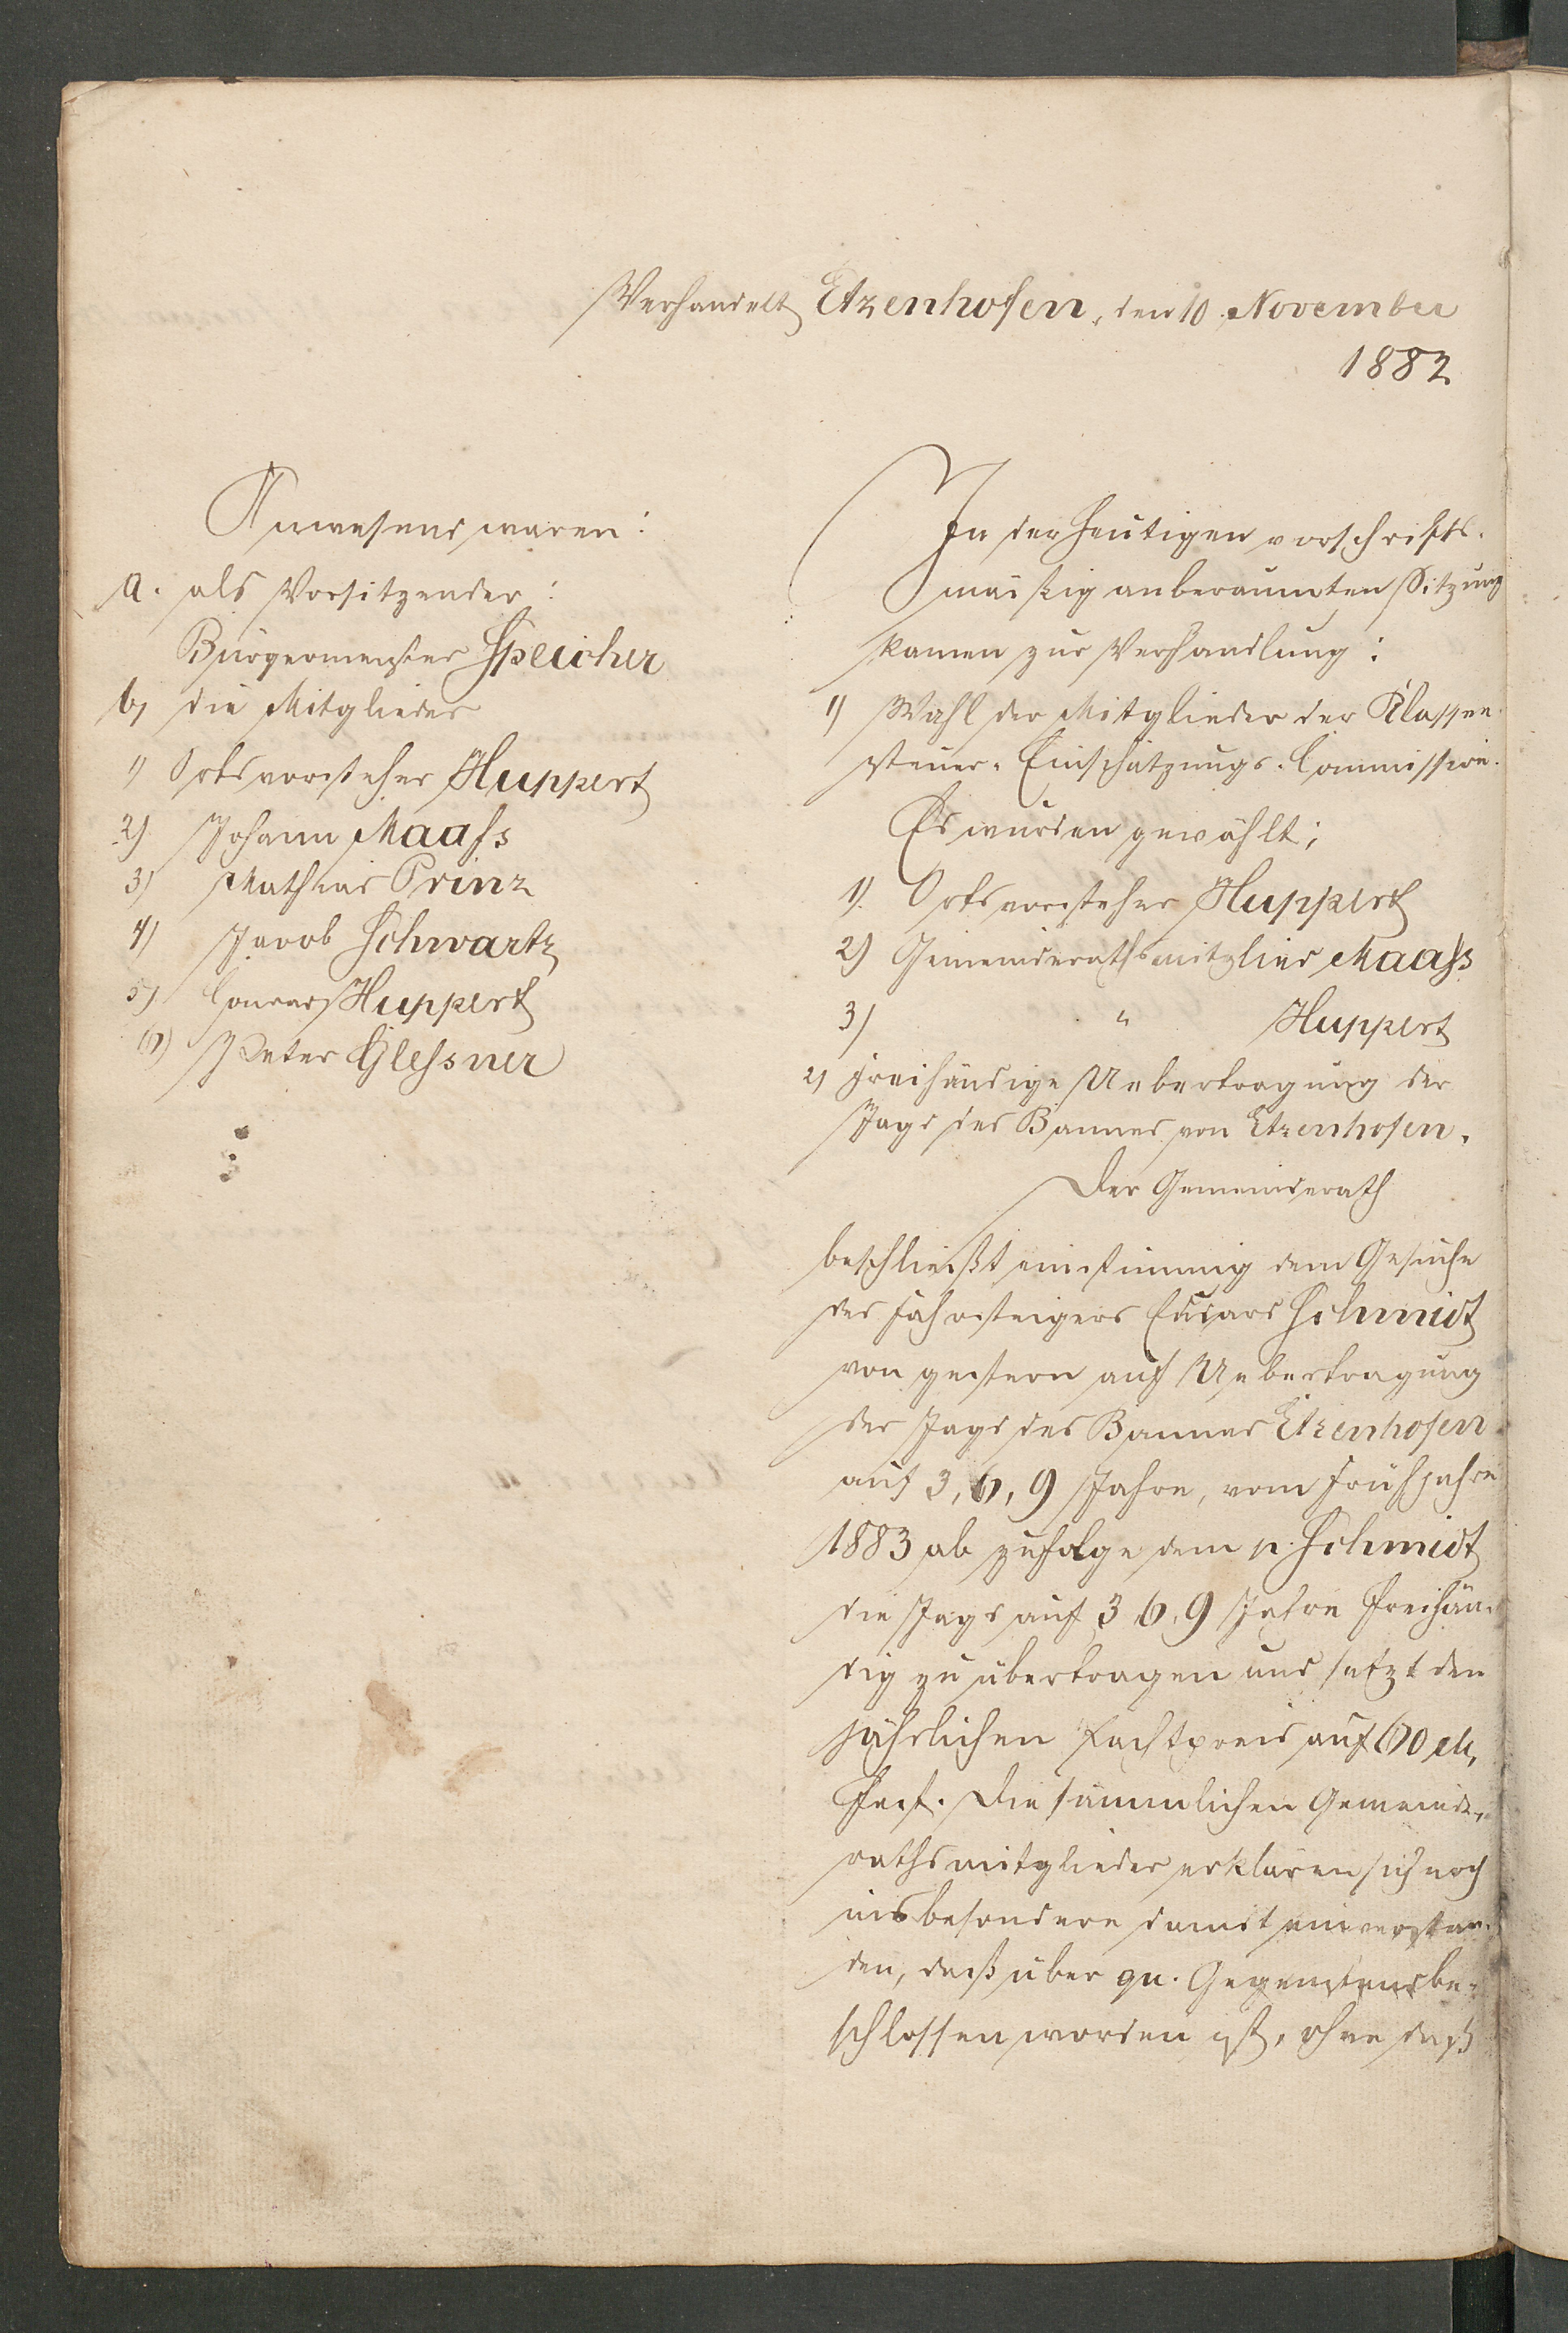 Verhandelt Etzenhofen, den 10. November
1882
Anwesend waren:
a. als Vorsitzender:
Bürgermeister Speicher
b, die Mitglieder
1) Ortsvorsteher Huppert
2) Johann Maaſs
3) Mathias Prinz
4) Jacob Schwartz
5) Conrad Huppert
6) Peter Gleſsner
In der heutigen vorschrifts-
mäßig anberaumten Sitzung
kamen zur Verhandlung:
1) Wahl der Mitglieder der Klassen-
steuer-Einschätzungs-Commission.
Es wurden gewählt;
1). Ortsvorsteher Huppert
2) Gemeinderathsmitglied Maaſs
3) " Huppert
2) freihändige Uebertragung der
Jagd des Bannes von Etzenhofen.
Der Gemeinderath
beschließt einstimmig dem Gesuche
des Fahrsteigers Eduard Schmidt
von gestern auf Uebertragung
der Jagd des Bannes Etzenhofen
auf 3, 6, 9 Jahre, vom Frühjahre
1883 ab zufolge dem p. Schmidt
die Jagd auf 3 6, 9 Jahre freihän-
dig zu übertragen und setzt den
jährlichen Pachtpreis auf 60 M,
fest. Die sämmlichen Gemeinde-
rathsmitglieder erklären sich noch
insbesondere damit einverstan-
den, daß über qu. Gegenstand be-
schlossen worden ist, ohne daß